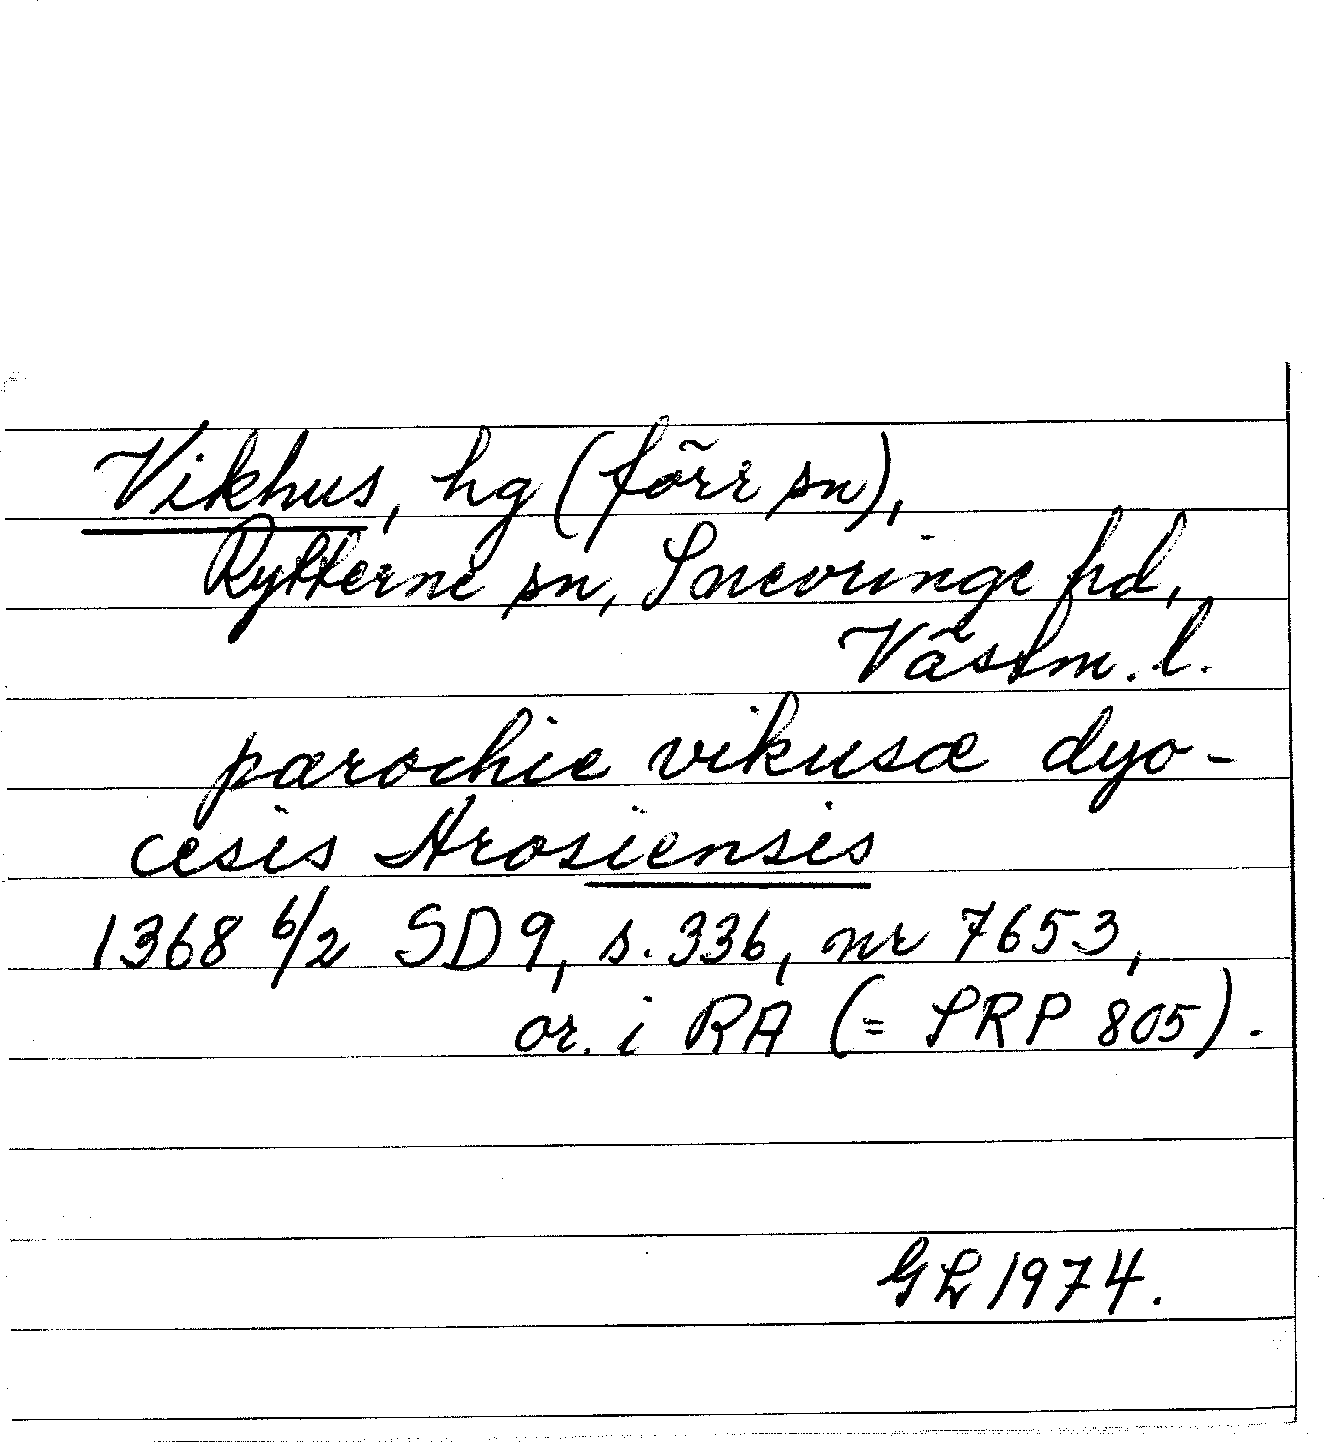 Vikhus, hg (förr sn),
Rytterne sn, Snevringe hd,
Västm. l.
parochie vikusæ dyo-
cesis Arosiensis
1368 6/2 SD 9, s. 336, nr 7653,
or. i RA (= SRP 805).
GL 1974.